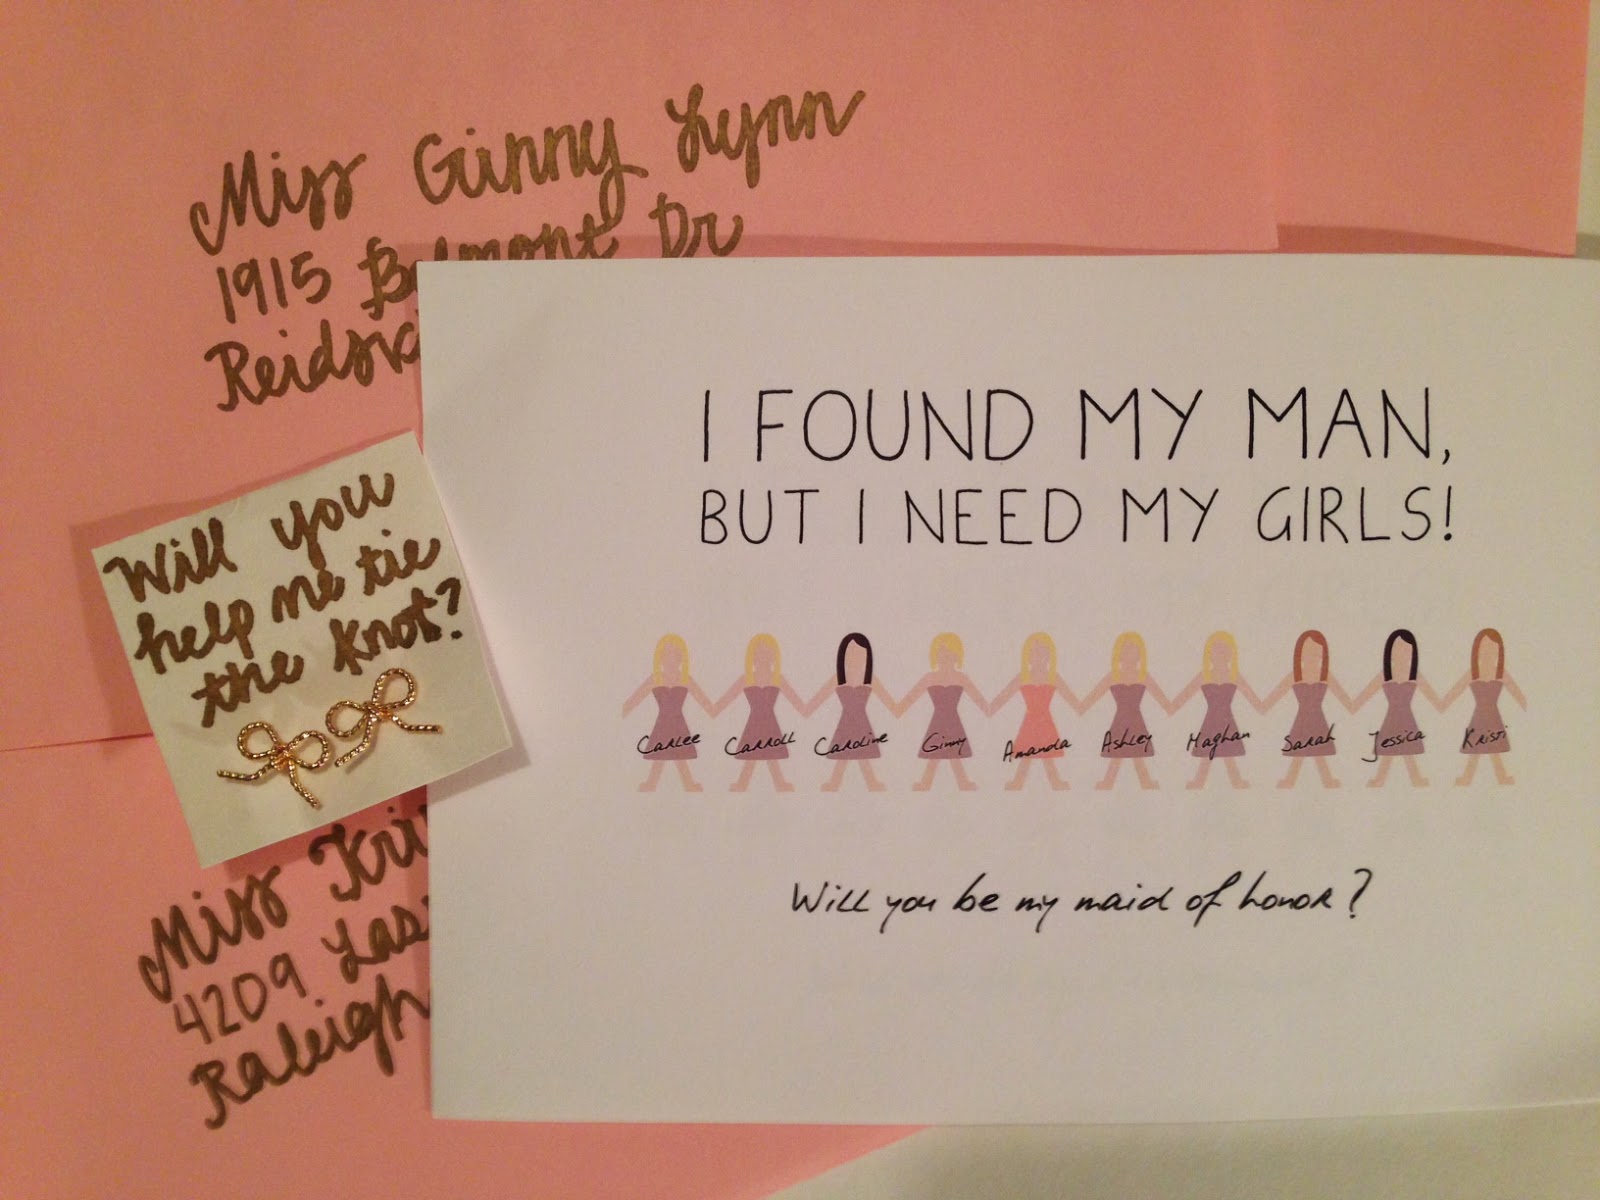 Miss Ginny Lynn
1915 Belmont Dr
I FOUND MY MAN,
BUT I NEED MY GIRLS!
Will you
help me tie
the knot?
Carlee Carroll Caroline Ginny Amanda Ashley Maghan Sarah Jessica Kristi
Will you be my maid of honor?
Miss
4209
Raleigh